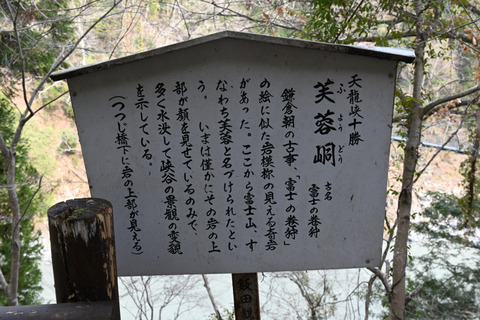 天龍峡十勝
ふようどう
芙蓉峒
古名
富士の巻狩
鎌倉朝の古事、「富士の巻狩」
の絵に似た岩模様の見える奇岩
があった。ここから富士山、す
なわち芙蓉と名づけられたとい
う。 いまは僅かにその岩の上
部が顔を見せているのみで、
多く水没して峡谷の景観の変貌
を示している。
(つつじ橋下に岩の上部が見える)
飯田観